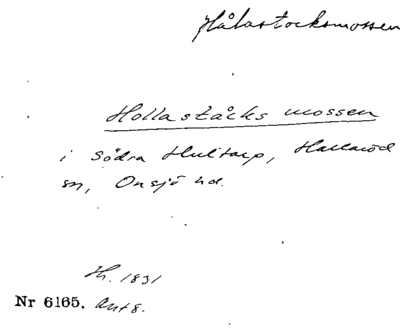 Hålastocksmossen
Hollastäcks mossen
i Södra Hultarp, Hallaröd
sn, Onsjö hd.
Th. 1831
Nr 6165. Akt 8.